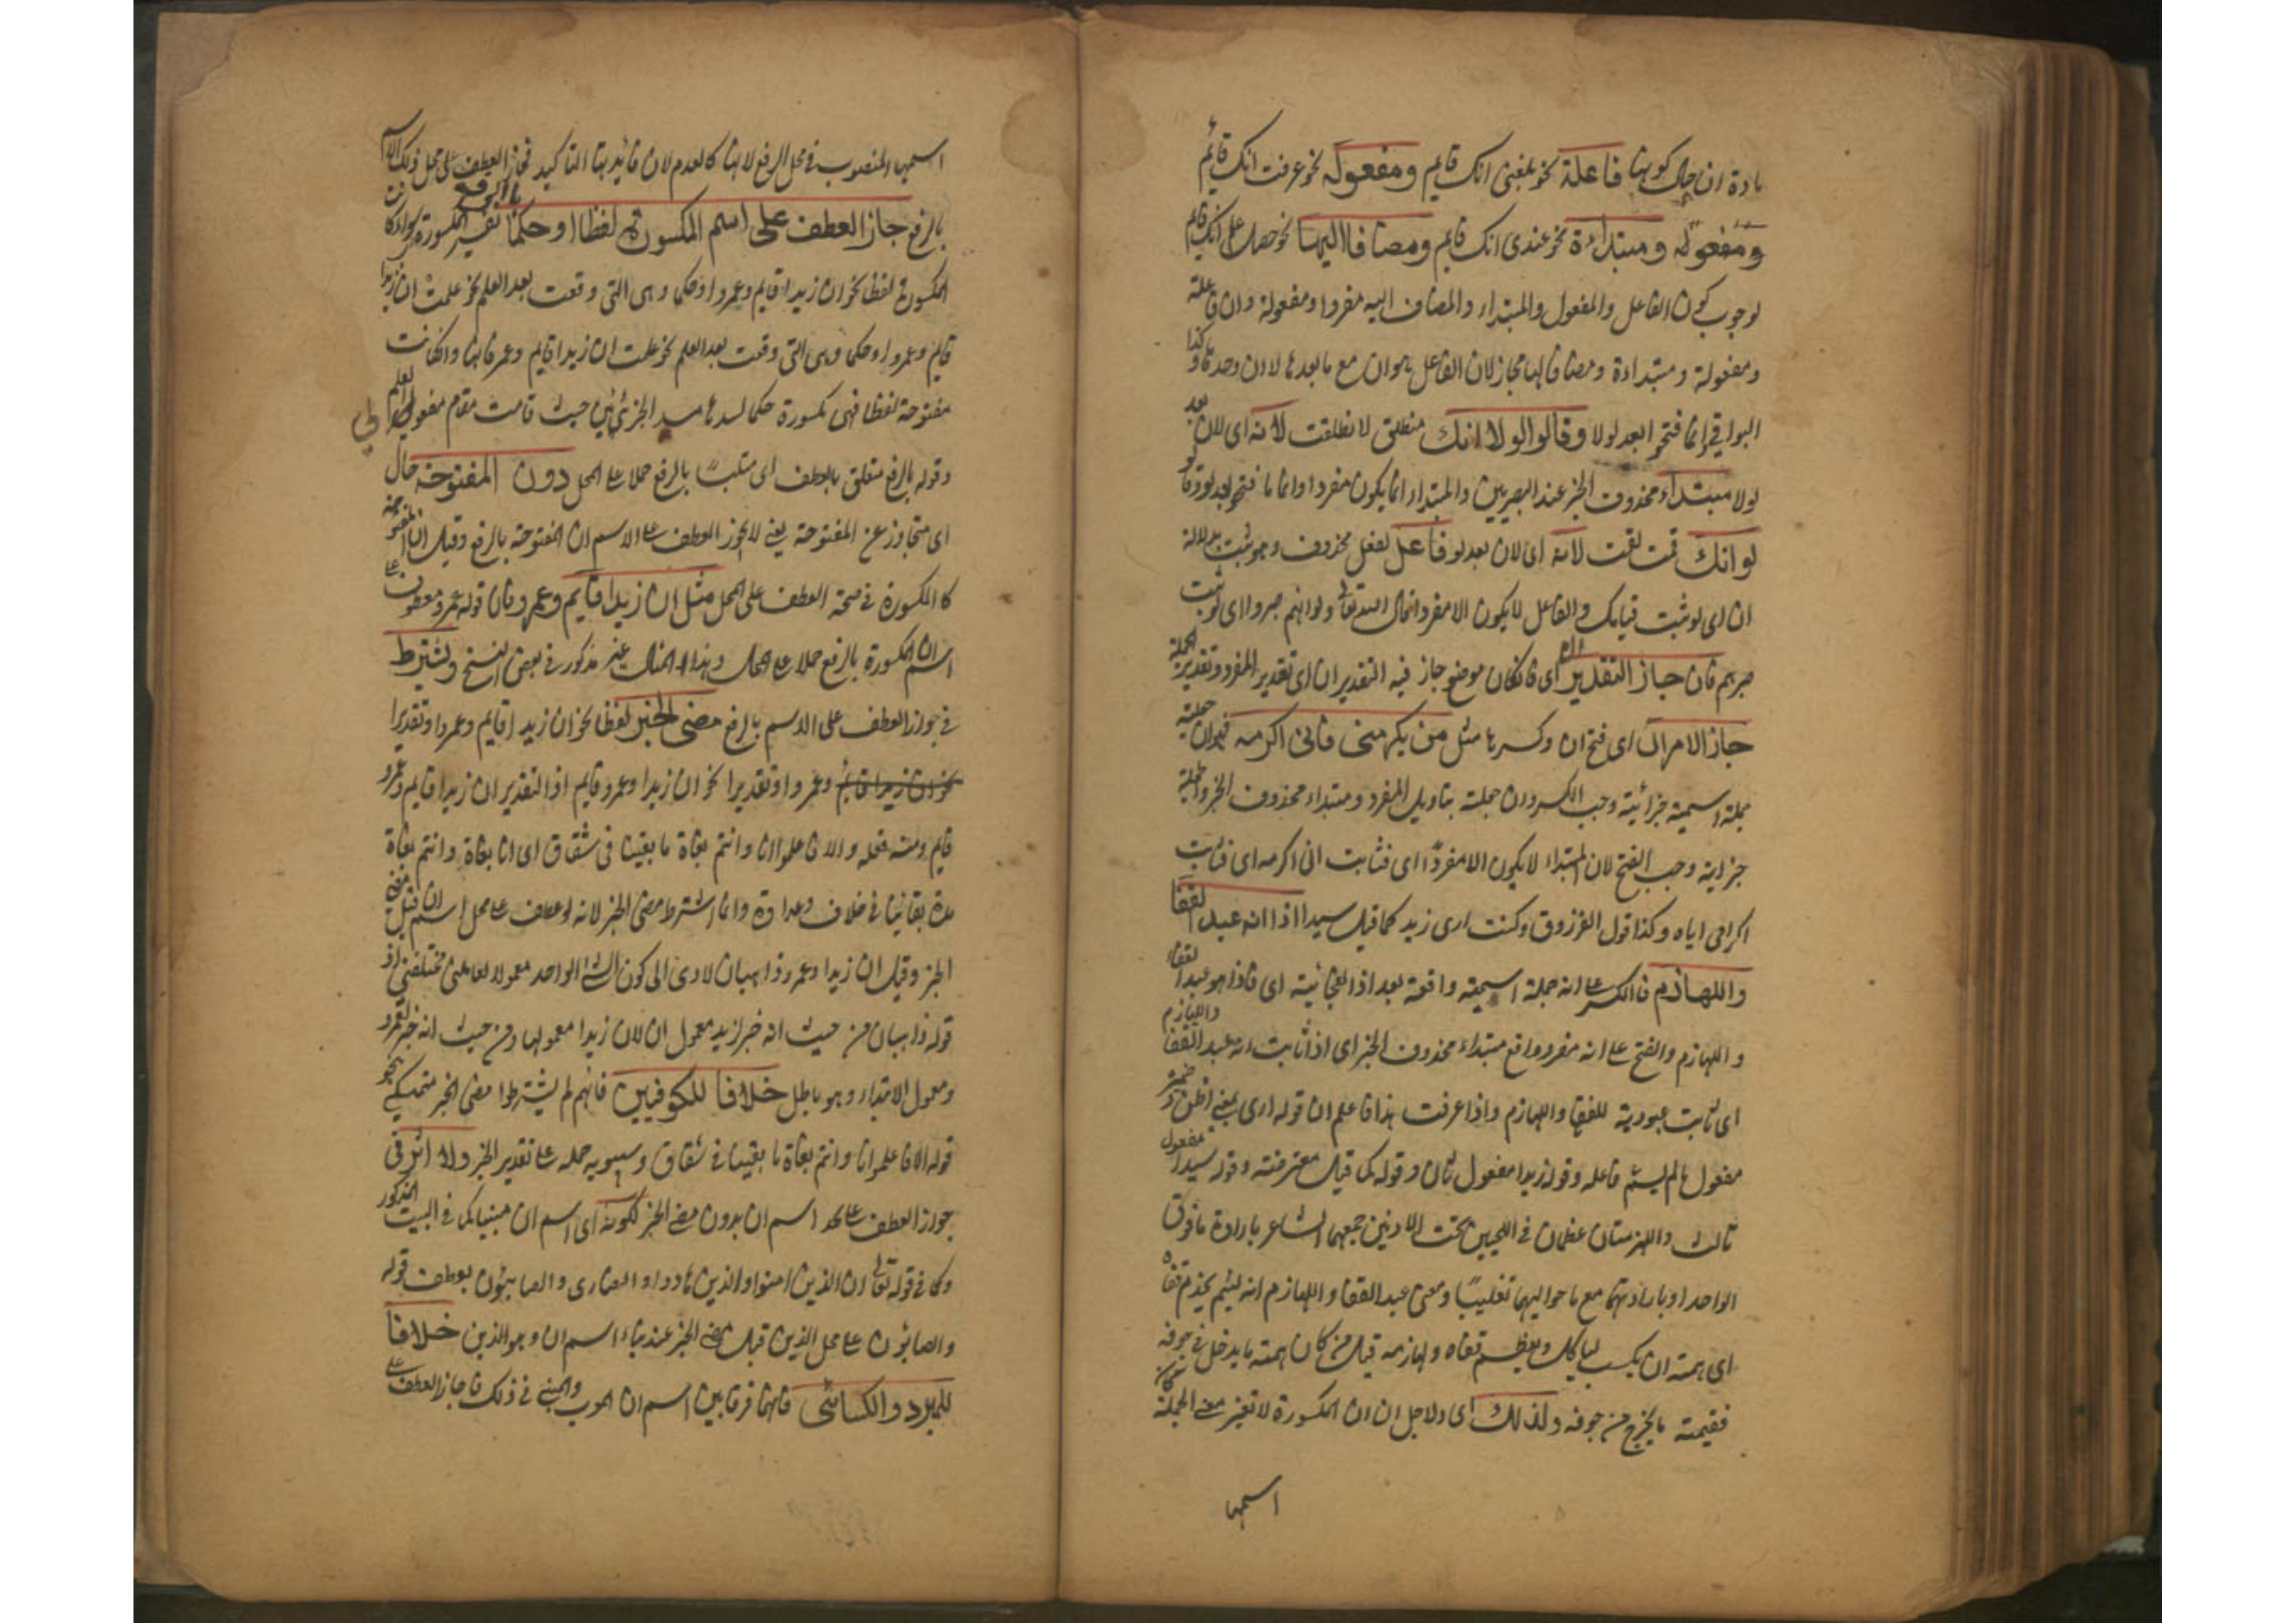 مادة ان حال كونها فاعلة نحو بلغني انك قايم ومفعولة نحو عرفت انك قائم
ومفعولة ومبتداءة نحو عندي انك قايم ومضافا اليها نحو حصلت على انك قايم
لوجوب كون الفاعل والمفعول والمبتداء والمضاف اليه مفردا ومفعولة وان فاعلة
ومفعولة ومبتداءة ومضافا اليها مجاز لان الفاعل هو ان مع ما بعدها لا ان وحدها وكذا
البواقي وانما فتحوا بعد لولا وقالوا لولا انك منطلق لانطلقت لانه اى لان بعد
لولا مبتداء محذوف الخبر عند البصريين والمبتداء انما يكون مفردا وانما فتحوا بعد لو وقالوا
لو انك قمت لقمت لانه اى لان بعد لو فاعل لفعل محذوف وهو ثبت بدلالة
ان اى لو ثبت قيامك والفاعل لا يكون الا مفردا قال الله تعالى ولو انهم صبروا اى لو ثبت
صبرهم فان جاز التقديران اى فان كان موضع جاز فيه التقديران اى تقدير المفرد وتقدير الجملة
جاز الامران اى فتح ان وكسرها مثل من يكرمني فاني اكرمه فان جملة
جملة اسمية جزائية وجب الكسر وان جملة بتاويل المفرد ومبتداء محذوف الخبر والجملة
جزاية وجب الفتح لان المبتداء لا يكون الا مفردًا اى فثابت اني اكرمه اى فثابت
اكرامي اياه وكذا قول الفرزدق وكنت ارى زيد كما قيل سيدا اذا انه عبد القفا
واللهازم فالكسر على انه جملة اسمية واقعة بعد اذا الفجائية اى فاذا هو عبد القفا
واللهازم والفتح على انه مفرد واقع مبتداء محذوف الخبر اى اذا ثابت انه عبد القفا واللهازم
اى ثابت عبودية للقفا واللهازم واذا عرفت هذا فاعلم ان قوله ارى بمعنى اظن ضميره
مفعول ما لم يسم فاعله وقوله زيدا مفعول ثان وقوله كما قيل معترضة وقوله سيدا مفعول
ثالث واللهزمتان عظمان في اللحيين تحت الاذنين جمعهما الشاعر بارادة ما فوق
الواحد او بارادتهما مع ما حواليهما تغليبًا ومعنى عبد القفا واللهازم انه لئيم يخدم قفاه
اى همته ان يكسب لياكل ويعظم قفاه ولهازمه قيل من كان همته ما يدخل في جوفه
فقيمته ما يخرج من جوفه ولذلك اى ولاجل ان ان المكسورة لا تغير معنى الجملة
اسمها
اسمها المنصوب في محل الرفع لانها كالعدم لان فائدتها التاكيد فجاز العطف على محل ذلك الاسم
بالرفع جاز العطف على اسم المكسورة لفظا او حكما بالرفع تفسير المكسورة سواء كانت
المكسورة لفظا نحو ان زيدا قايم وعمرو او حكما وهى التى وقعت بعد العلم نحو علمت ان زيدا
قايم وعمرو او حكما وهى التى وقعت بعد العلم نحو علمت ان زيدا قايم وعمرو فانها وان كانت
مفتوحة لفظا فهى مكسورة حكما لسدها مسد الجزئين حيث قامت مقام مفعولي العلم
وقوله بالرفع متعلق بالعطف اى متلبسًا بالرفع حملا على المحل دون المفتوحة حال
اى متجاوز عن المفتوحة يعنى لا يجوز العطف على الاسم ان المفتوحة بالرفع وقيل ان المفتوحة
كالمكسورة في صحة العطف على المحل مثل ان زيدا قايم وعمرو فان قوله عمرو معطوف على
اسم ان المكسورة بالرفع حملا على المحل وهذا المثال غير مذكور في بعض النسخ ويشترط
في جواز العطف على الاسم بالرفع مضى الخبر لفظا نحو ان زيدا قايم وعمرو او تقديرا
نحو ان زيدا قايم وعمرو او تقديرا نحو ان زيدا وعمرو قايم اذ التقدير ان زيدا قايم وعمرو
قايم ومنه قوله والا فاعلموا انا وانتم بغاة ما بقينا فى شقاق اى انا بغاة وانتم بغاة
مدة بقائنا في خلاف وعداوة وانما اشترط مضى الخبر لانه لو عطف على محل اسم ان قبل مضى
الخبر وقيل ان زيدا وعمرو ذاهبان لادى الى كون الشئ الواحد معمولا لعاملين مختلفين اذ
قوله ذاهبان من حيث انه خبر زيد معمول ان لان زيدا معمولها ومن حيث انه خبر لعمرو
ومعمول الابتداء وهو باطل خلافا للكوفيين فانهم لم يشترطوا مضى الخبر متمسكين بنحو
قوله الا فاعلموا انا وانتم بغاة ما بقينا في شقاق وسيبويه حمله على تقدير الخبر ولا اثر فى
جواز العطف على محل اسم ان بدون مضى الخبر لكونه اى اسم ان مبنيا كما في البيت المذكور
وكما في قوله تعالى ان الذين امنوا والذين هادوا والنصارى والصابئون بعطف قوله
والصابؤن على محل الذين قبل مضى الخبر عند بناء اسم ان وهو الذين خلافا
للمبرد والكسائى فانهما فرقا بين اسم ان المعرب والمبنى في ذلك فاجاز العطف على